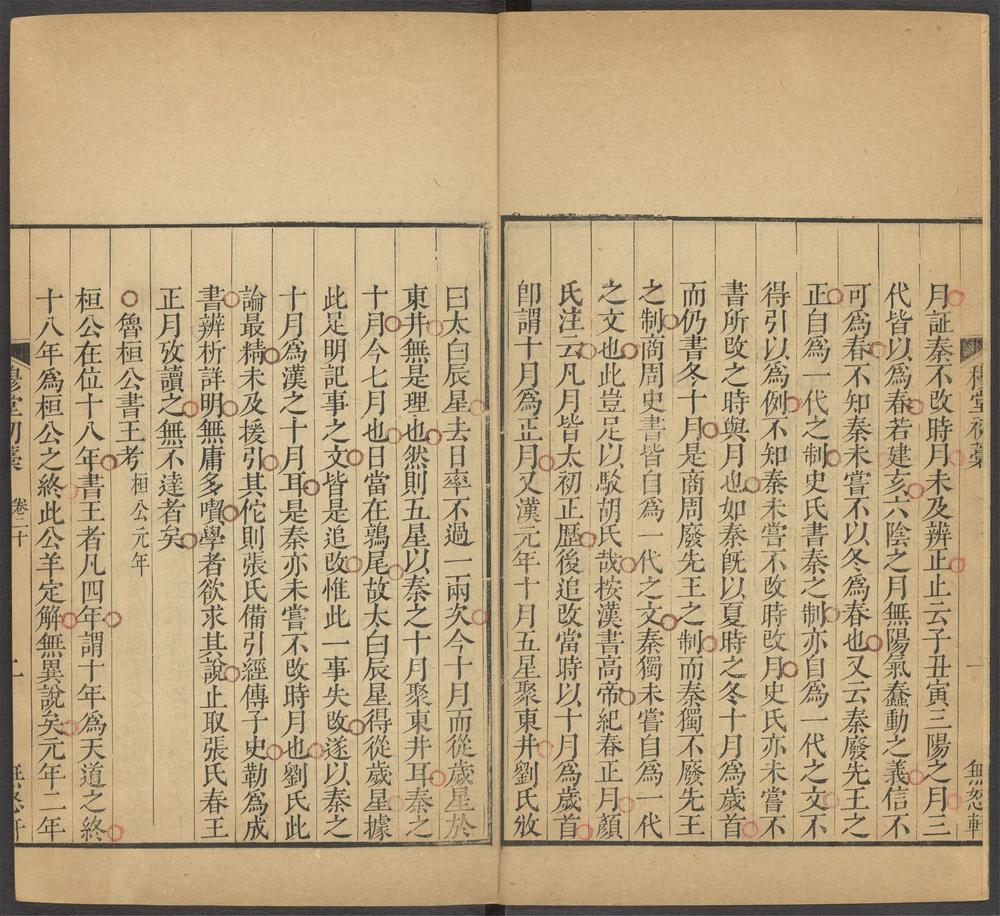 月証秦不改時月未及辨止止云子丑寅三陽之月三
代皆以爲春若建亥六陰之月無陽氣蠢動之義信不
可爲春不知秦未嘗不以冬爲春也又云秦廢先王之
正自爲一代之制史氏書秦之制亦自爲一代之文不
得引以爲例不知秦未嘗不改時改月史氏亦未嘗不
書所改之時與月也如秦旣以夏時之冬十月爲歲首
而仍書冬十月是商周廢先王之制而秦獨不廢先王
之制商周史書皆自爲一代之文秦獨未嘗自爲一代
之文也此豈足以駁胡氏哉按漢書高帝紀春正月顏
氏注云凡月皆太初正歷後追改當時以十月爲歲首
卽謂十月爲正月又漢元年十月五星聚東井劉氏攽
曰太白辰星去日率不過一兩次今十月而從歲星於
東井無是理也然則五星以秦之十月聚東井耳秦之
十月今七月也日當在鶉尾故太白辰星得從歲星據
此足明記事之文皆是追改惟此一事失改遂以秦之
十月爲漢之十月耳是秦亦未嘗不改時月也劉氏此
論最精未及援引其佗則張氏備引經傳子史勒爲成
書辨析詳明無庸多喙學者欲求其說止取張氏春王
正月攷讀之無不達者矣
魯桓公書王考 桓公元年
桓公在位十八年書王者凡四年謂十年爲天道之終
十八年爲桓公之終此公羊定解無異說矣元年二年
穆堂初稾 卷二十 二 無怒軒